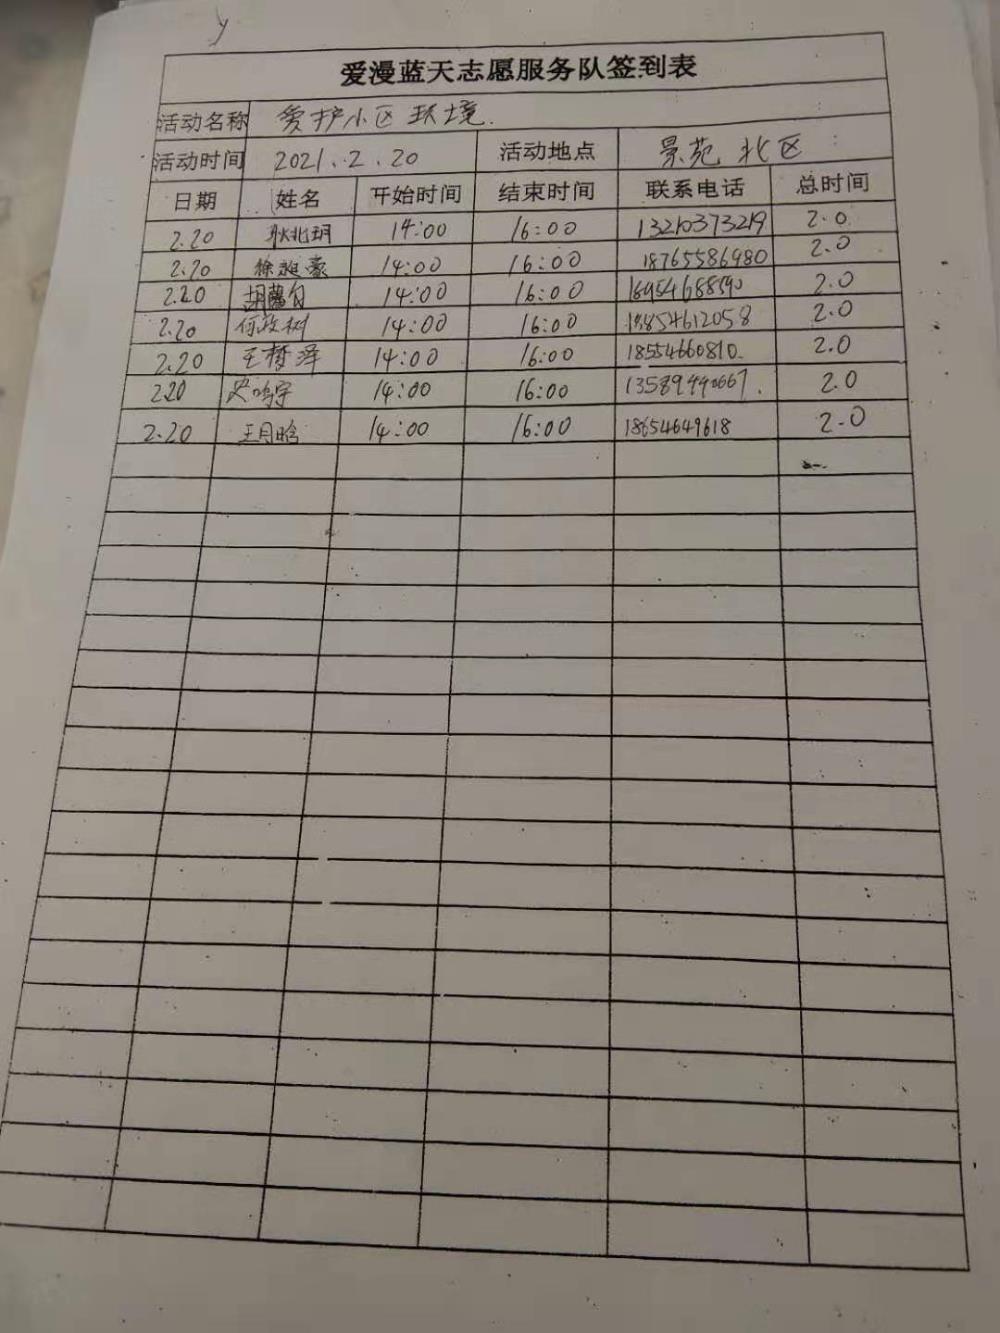 爱漫蓝天志愿服务队签到表
活动名称 爱护小区环境.
活动时间 2021.2.20 活动地点 景苑北区
日期 姓名 开始时间 结束时间 联系电话 总时间
2.20 耿兆玥 14:00 16:00 13210373219 2.0
2.20 徐昶豪 14:00 16:00 18765586980 2.0
2.20 14:00 16:00 2.0
2.20 何政树 14:00 16:00 18854612058 2.0
2.20 王梦泽 14:00 16:00 18554660810. 2.0
2.20 史鸣宇 14:00 16:00 13589440667. 2.0
2.20 王月晗 14:00 16:00 18654649618 2.0